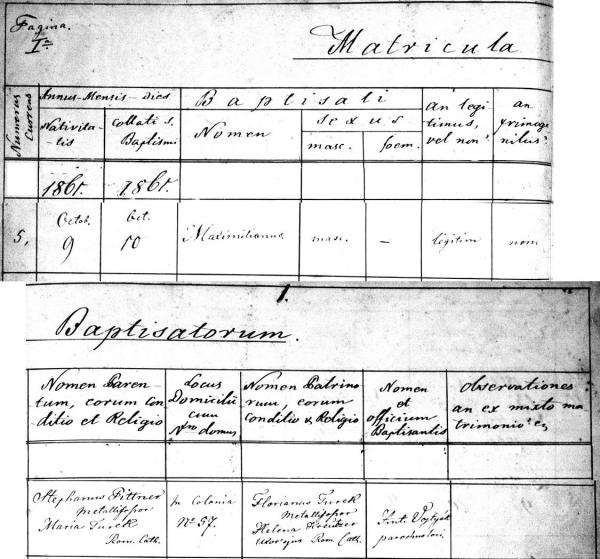 Pagina.
Iª
Matricula
Numerus Currens
Annus-Mensis-Dies
Baptisati
Nativita-
tis
collati s.
Baptismi
Nomen
Sexus
masc.
foem.
an legi
timus,
vel non?
an
primoge
nitus?
1861.
1861.
5.
Octob.
9
Oct.
10
Maximilianus.
masc.
–
legitim
nom
1.
Baptisatorum.
Nomen Paren-
tum, eorum Con
ditio et Religio
Locus
Domicilii
cum
Nro domus
Nomen Patrino
rum, eorum
Conditio & Religio
Nomen
et
officium
Baptisantis
Observationes
an ex mixto ma
trimonio? e,
Stephanus Pittner
Metallifossor
Maria Turek
Rom. Cath.
in Colonia
Nº 57.
Florianus Turek
Metallifossor
Helena
uxor ejus Rom. Cath.
Ant.
parochus loci.